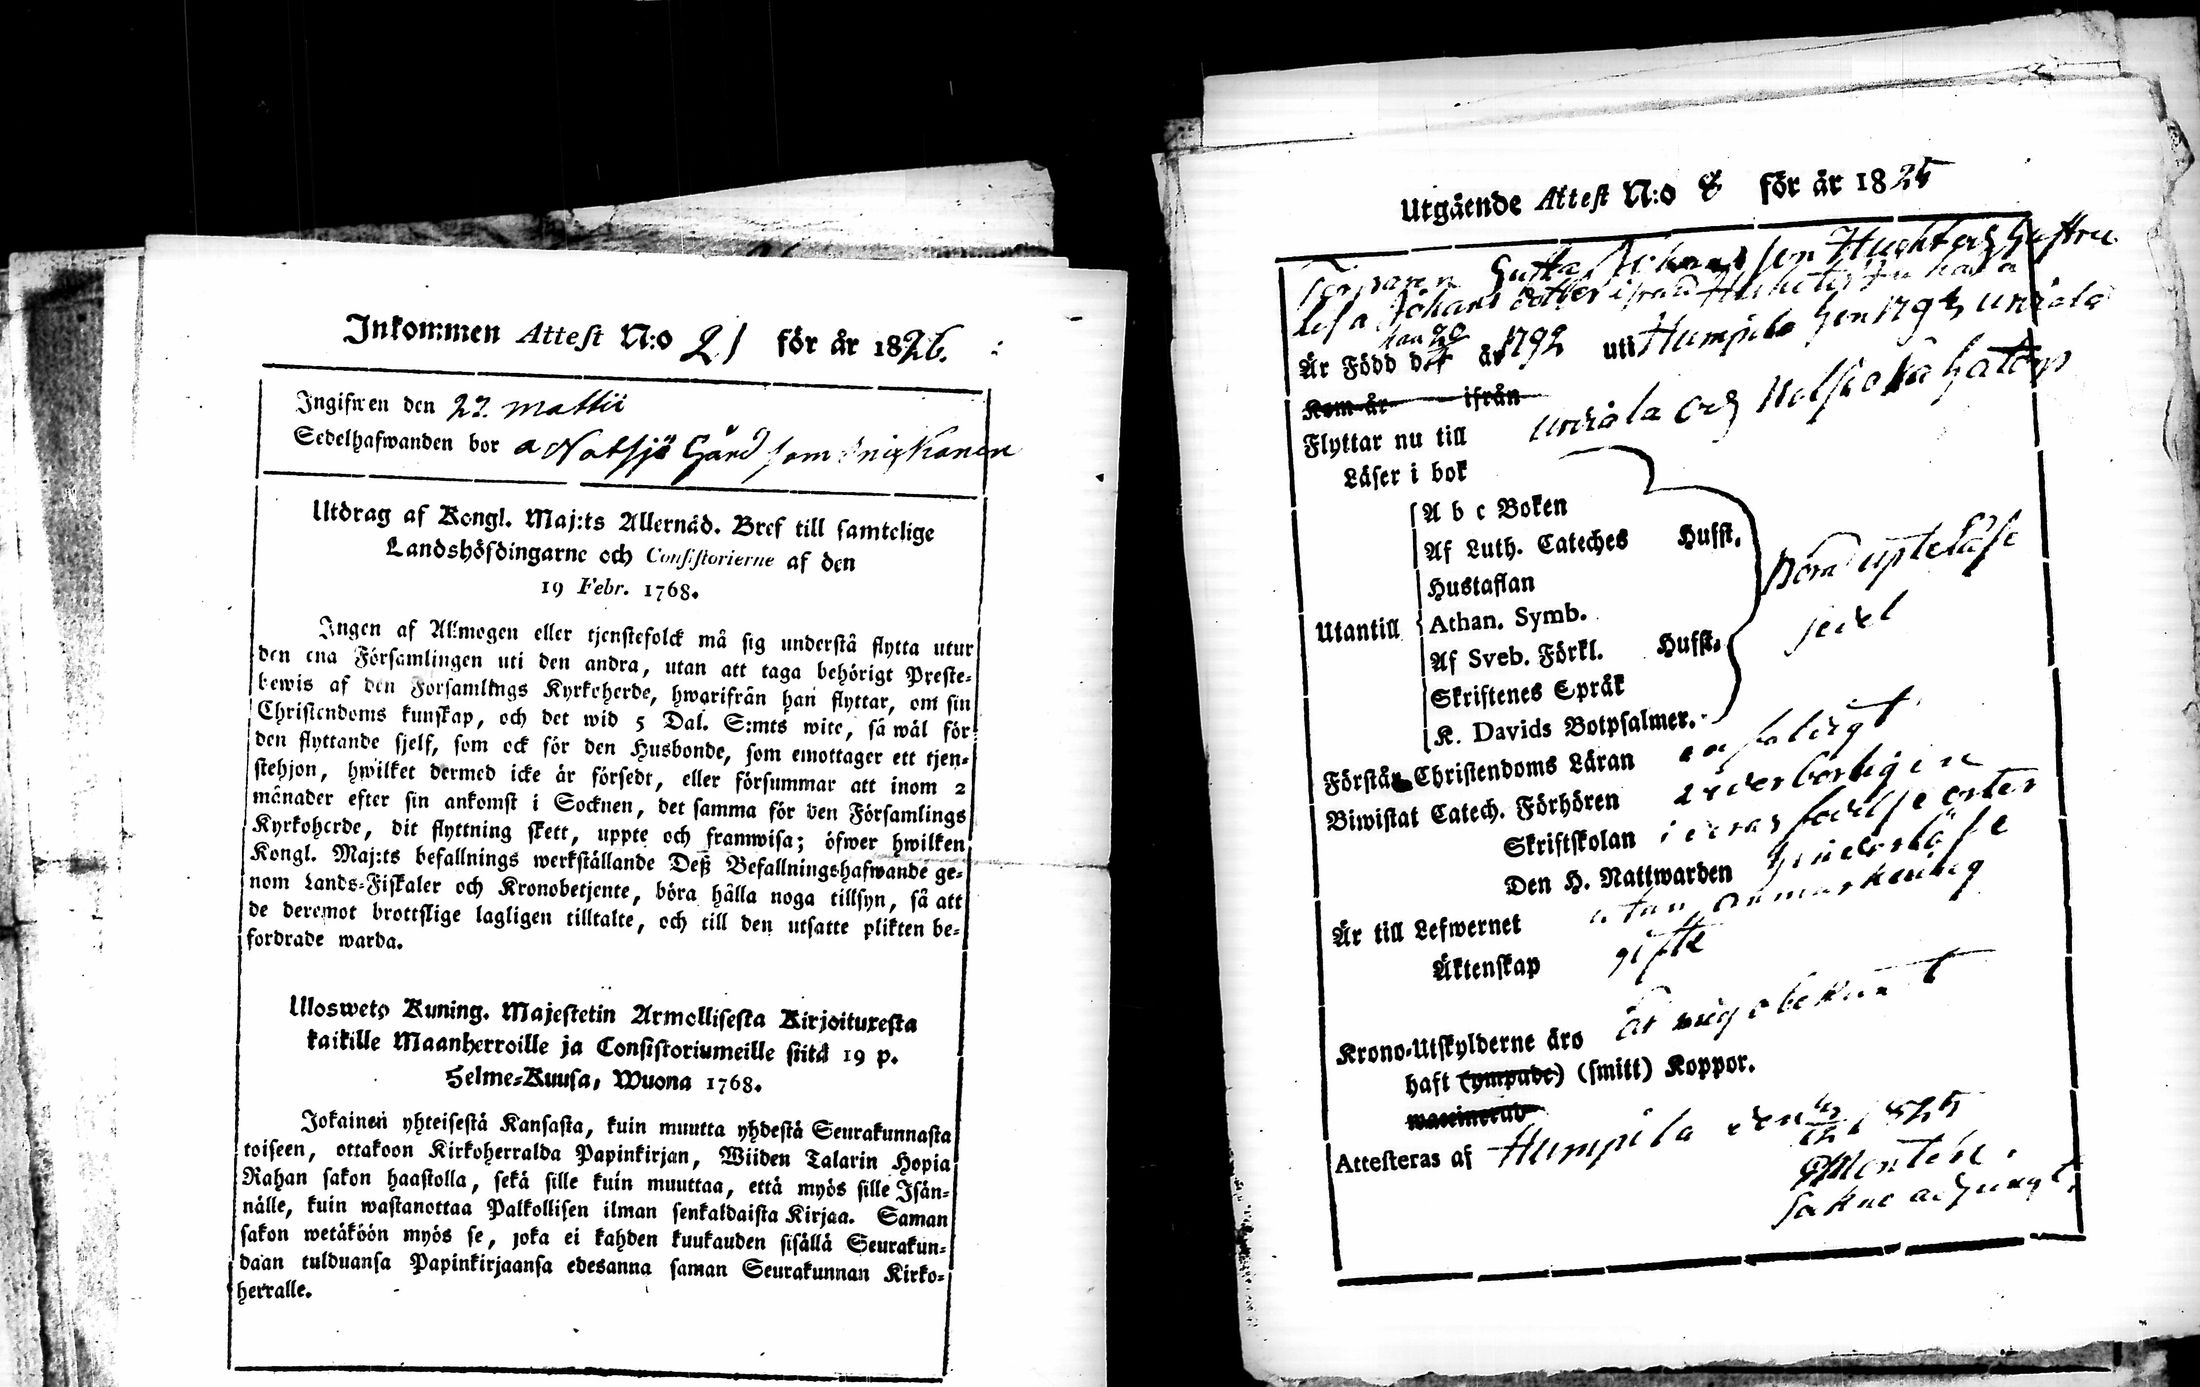 Inkommen Attest N:o 21 för år 1826.
Ingifwen den 22. mattii
Sedelhafwanden bor a Notsjö Gård som
Utdrag af Kongl. Maj:ts Allernåd. Bref till samtelige
Landshöfdingarne och Consistorierne af den
19 Febr. 1768.
Ingen af Allmogen eller tjenstefolck må sig understå flytta utur
den ena Församlingen uti den andra, utan att taga behörigt Preste-
bewis af den Forsamlings Kyrkoherde, hwarifrån han flyttar, om sin
Christendoms kunskap, och det wid 5 Dal. S:mts wite, så wäl för
den flyttande sjelf, som ock för den Husbonde, som emottager ett tjen-
stehjon, hwilket dermed icke är försedt, eller försummar att inom 2
månader efter sin ankomst i Socknen, det samma för den Församlings
Kyrkoherde, dit flyttning skett, uppte och framwisa; öfwer hwilken
Kongl. Maj:ts befallnings werkställande Deß Befallningshafwande ge-
nom Lands-Fiskaler och Kronobetjente, böra hålla noga tillsyn, så att
de deremot brottslige lagligen tilltalte, och till den utsatte plikten be-
fordrade warda.
Ulosweto Kuning. Majestetin Armollisesta Kirjoituxesta
kaikille Maanherroille ja Consistoriumeille siitä 19 p.
Helme-Kuusa, Wuona 1768.
Jokainen yhteisestä Kansasta, kuin muutta yhdestä Seurakunnasta
toiseen, ottakoon Kirkoherralda Papinkirjan, Wiiden Talarin Hopia
Rahan sakon haastolla, sekä sille kuin muuttaa, että myös sille Isän-
nälle, kuin wastanottaa Palkollisen ilman senkaldaista Kirjaa. Saman
sakon wetäköön myös se, joka ei kahden kuukauden sisällä Seurakun-
daan tulduansa Papinkirjaansa edesanna saman Seurakunnan Kirko-
herralle.
Utgående Attest N:o 8 för år 1825
Torparen Gustaf Johansson Huchtas Hustru
Lisa Johans dotter ifrån
Är Född d. år 1792 uti Humpila hon 1792 Urdiala
Kom år ifrån
Flyttar nu till Urdiala och
Läser i bok
A b c Boken
Af Luth. Cateches Husst.
Hustaflan
Utantill Athan. Symb.
Af Sveb. Förkl. Husst.
Skriftenes Språk
K. Davids Botpsalmer.
böra upte Läse
sedel
Förstår Christendoms Läran enfaldigt
Biwistat Catech. Förhören wederbörligen
Skriftskolan i deras födelse orter
Den H. Nattwarden hinderslöse
Är till Lefwernet utan anmärkning
Äktenskap gifte
Krono-Utskylderne äro är mig obekant
haft (ympade) (smitt) Koppor.
waccinerad
Attesteras af Humpila den 1825